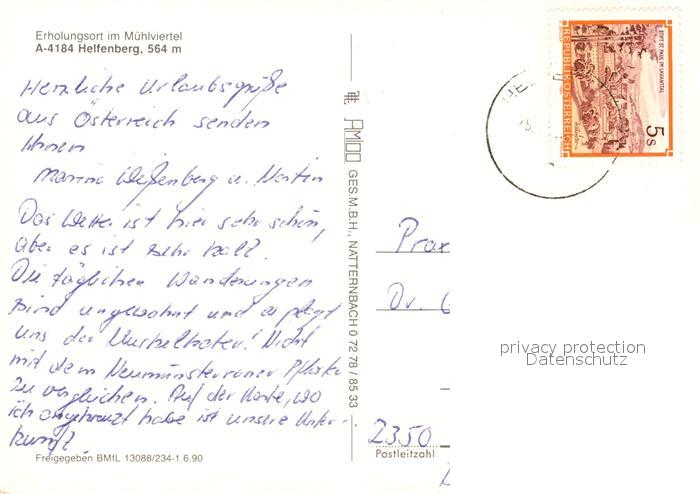 Erholungsort im Mühlviertel
A-4184 Helfenberg, 564 m
Herzliche Urlaubsgrüße
aus Österreich senden
Ihnen
Weißenberg u.
Das Wetter ist hier sehr schön,
aber es ist sehr kalt.
Die täglichen Wanderungen
sind ungewohnt und es plagt
uns der Muskelkater! Nicht
mit dem Neumünsteraner Pflaster
zu vergleichen. Auf der Karte, wo
ich angekreuzt habe ist unsere Unter-
kunft.
Freigegeben BMfL 13088/234-1.6.90
AMIDO GES.M.B.H., NATTERNBACH 0 72 78 / 85 33
STIFT ST. PAUL IM LAVANTTAL
REPUBLIK ÖSTERREICH
5 S
Prax
Dr.
privacy protection
Datenschutz
2350
Postleitzahl